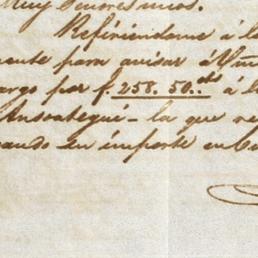 Muy Señores mios.
Refiriendome á la
mente para avisar á Vm
argo por f. 258. 50.cts á l
Ansoategui - la que se
ando su importe en